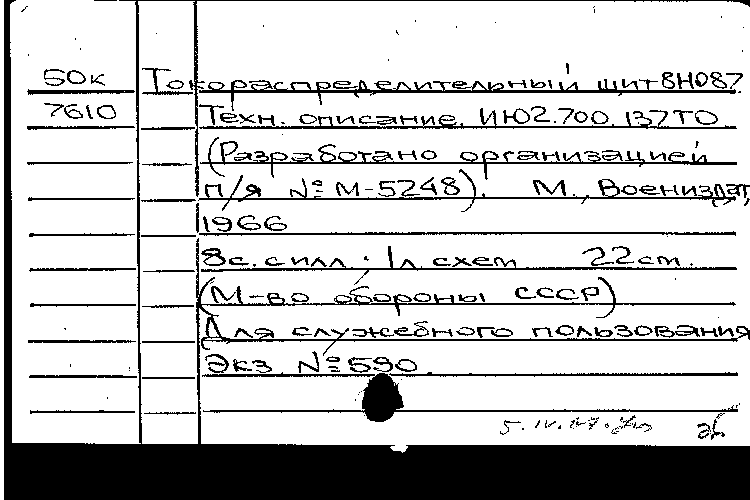 50к Токораспределительный щит 8Н087
7610 Техн. описание. ИЮ2.700.137ТО
(Разработано организацией
п/я № М-5248). М., Воениздат,
1966
8с. с илл. 1л схем 22см.
(М-во обороны СССР)
Для служебного пользования
Экз. № 590.